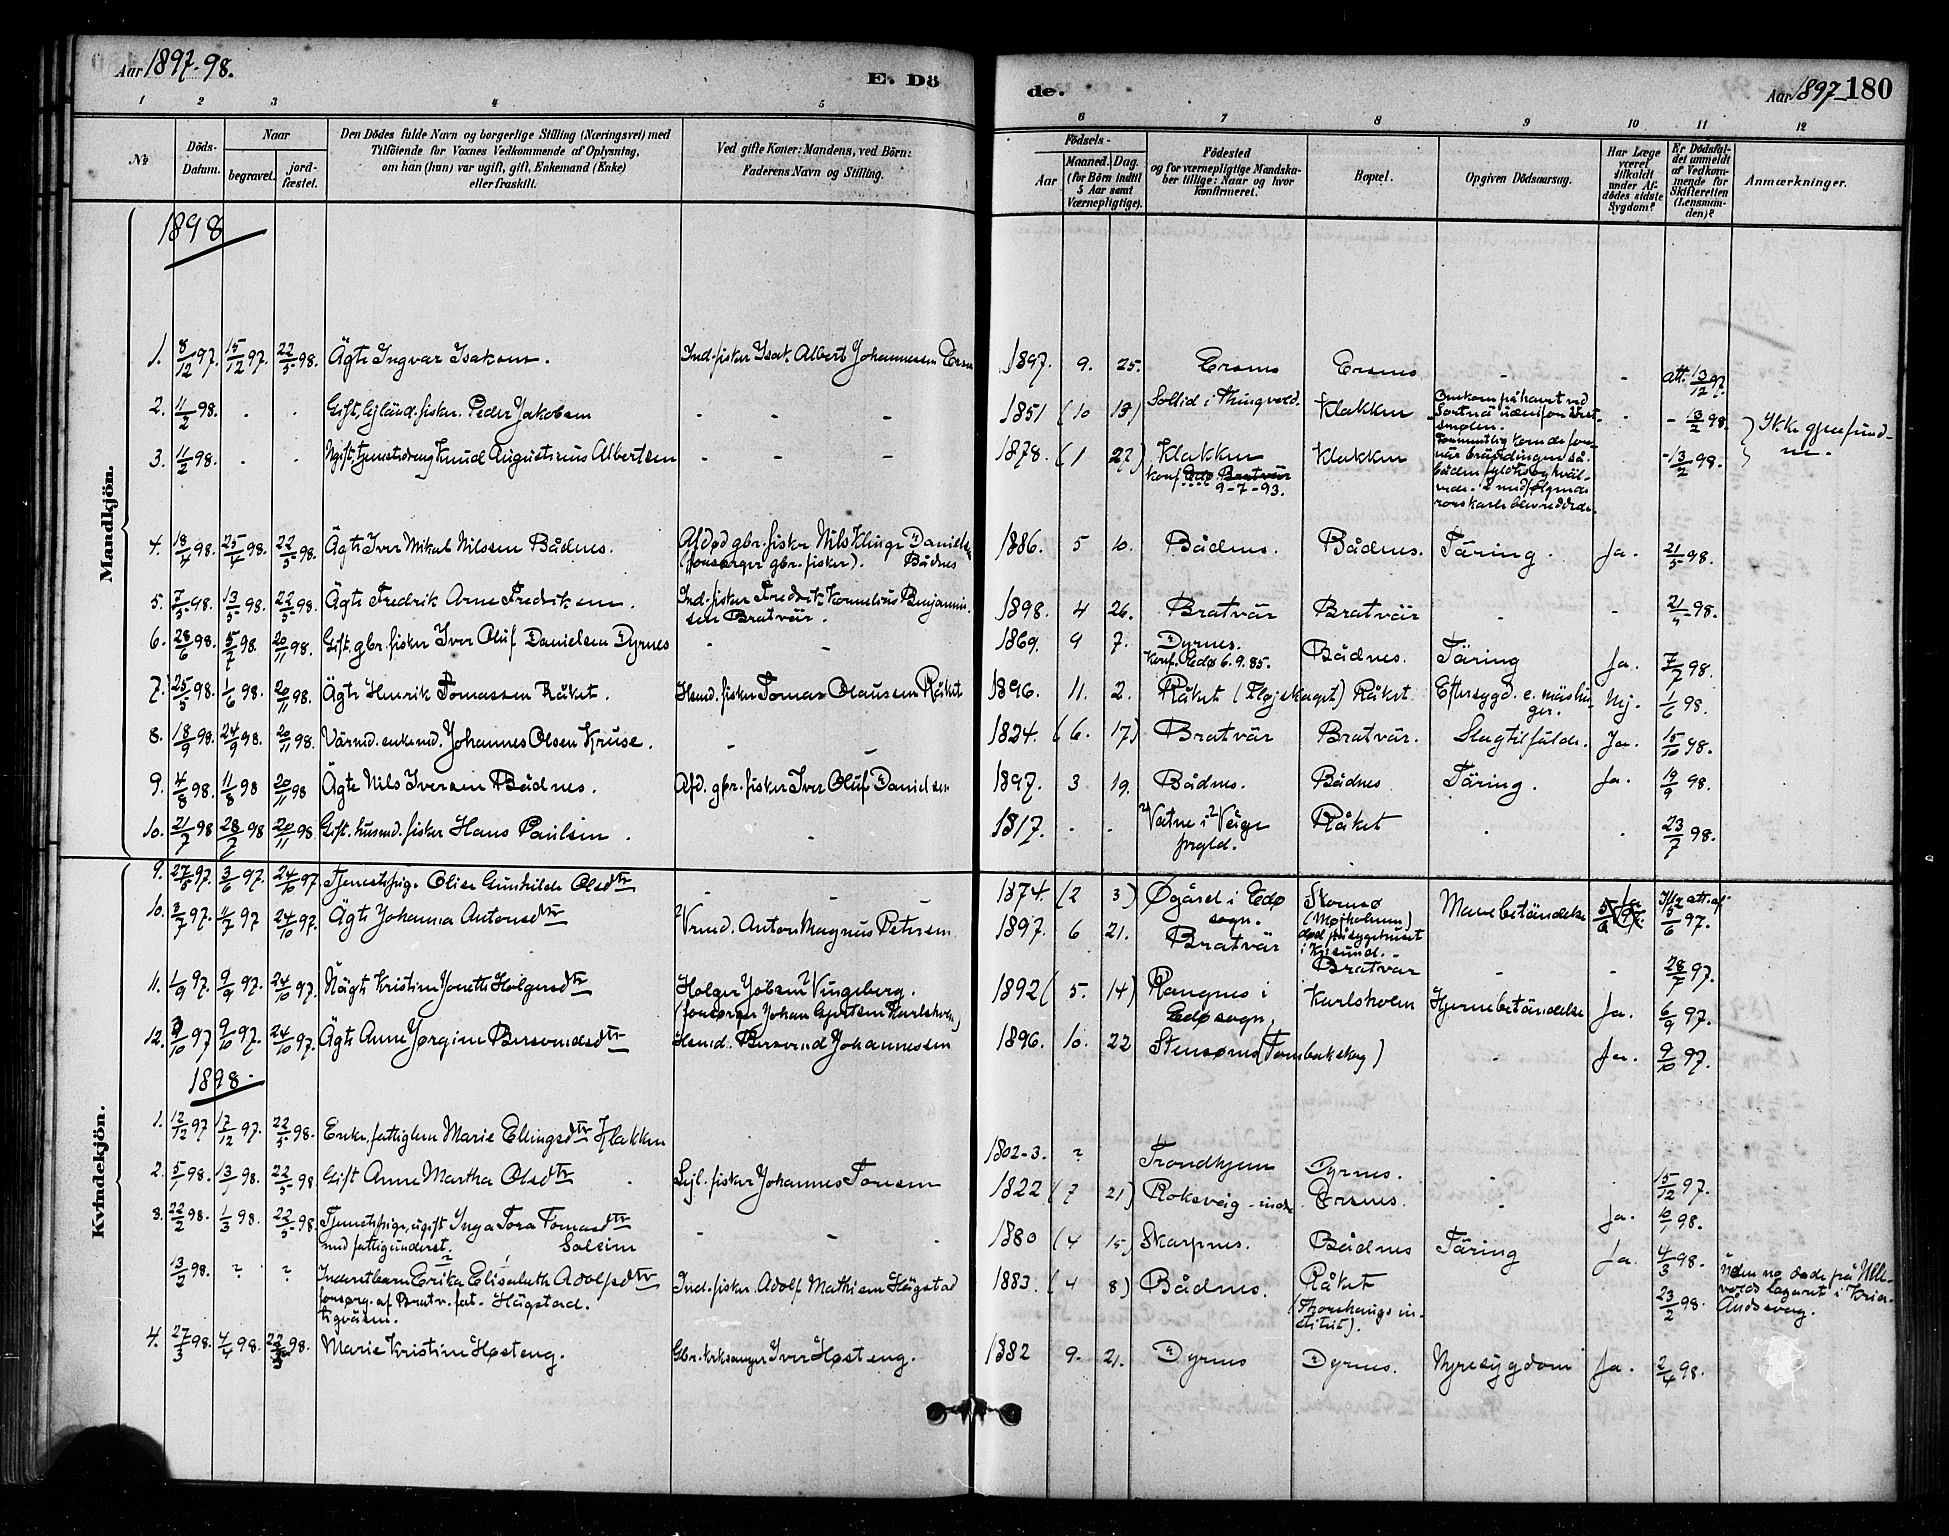 Aar 1897-98.
E. Dö
de.
Aar 1897- 180
1 2 3 4 5 6 7 8 9 10 11 12
No
Döds-Datum.
Naar
begravet.
jord-fæstet.
Den Dödes fulde Navn og borgerlige Stilling (Næringsvei) med
Tilföiende for Voxnes Vedkommende af Oplysning,
om han (hun) var ugift, gift, Enkemand (Enke)
eller fraskilt.
Ved gifte Koner: Mandens, ved Börn:
Faderens Navn og Stilling.
Födsels-
Aar
Maaned. Dag.
(for Börn indtil
5 Aar samt
Værnepligtige).
Födested
og for værnepligtige Mandska-
ber tillige: Naar og hvor
konfirmeret.
Bopæl.
Opgiven Dödsaarsag.
Har Læge
været
tilkaldt
under Af-
dödes sidste
Sygdom?
Er Dödsfal-
det anmeldt
af Vedkom-
mende for
Skifteretten
(Lensman-
den)?
Anmærkninger.
Mandkjön.
1898
1. 8/12 97. 15/12 97. 22/5 98. Ägte Ingvar Isaksen. Ind. fisker Isak Albert Johannessen Ersnes 1897. 9. 25. Ersnes Ersnes - - att. 13/12 97.
2. 11/2 98. . . Gift, fisker. Peder Jakobsen - - - 1851 (10 13) Sollid i Thingvold. Klakken Omkom på havet ved - - 13/2 98. Ikke gjenfund-
ne.
3. 11/2 98. . . Ugift, tjenestedreng Knud Augustinus Albertsen - - - 1878. (1 27) Klakken Klakken - 13/2 98.
konf. Edø Bratvär
9-7-93.
4. 18/4 98. 25/4 98. 22/5 98. Ägte Iver Mikal Nilssen Bådnes. Afdød gbr. fisker Nils Klinge Danielsen 1886. 5 10. Bådnes. Bådnes. Täring. Ja. 21/5 98.
(forsørger gbr. fisker). Bådnes
5. 7/5 98. 13/5 98. 22/5 98. Ägte Fredrik Arne Fredriksen. Ind. fisker Fredrik Kornelius Benjamin-
sen Bratvär. 1898. 4 26. Bratvär Bratvär - - 21/5 98.
6. 28/6 98. 5/7 98. 20/11 98. Gift. gbr. fisker Iver Oluf Danielsen Dyrnes - - 1869. 9 7. Dyrnes. Bådnes. Täring Ja. 7/7 98.
Konf. Edø 6.9.85.
7. 25/5 98. 1/6 98. 20/11 98. Ägte Henrik Tomassen Råket. Husmd. fisker Tomas Olausen Råket 1896. 11. 2. Råket Råket. Eftersygd. e. mäslin-
ger. Nej. 1/6 98.
8. 18/9 98. 24/9 98. 20/11 98. enkemd. Johannes Olsen Kruse. - - 1824. (6. 17) Bratvär Bratvär. Slagtilfälde. Ja. 15/10 98.
9. 4/8 98. 11/8 98 20/11 98 Ägte Nils Iversen Bådnes. Afd. gbr. fisker Iver Oluf Danielsen 1897. 3 19. Bådnes. Bådnes Täring. Ja. 19/9 98.
10. 21/7 98 28/7 98 20/11 98 Gift. husmd. fisker Hans Paulsen. - 1817. . . Vatne i Veige
prgld. Råket . . 23/7 98.
Kvindekjön.
9. 27/5 97. 3/6 97. 24/10 97. Tjenestepige Olise Gunhilde Olsdtr - - 1874. (2 3) Øgård i Edø
sogn. Skomsø
død på sygehuset
i Krsund. Mavebetändelse 5/6 97.
10. 3/7 97. 11/7 97 24/10 97. Ägte Johanna Antonsdtr Anton Magnus Petersen 1897. 6 21. Bratvär Bratvär - - 28/7 97.
11. 1/9 97. 9/9 97. 24/10 97. Uägte Kristine Jonette Holgersdtr Holger Vingeberg. 1892 (5. 14) Rangnes i
Edø sogn. Karlsholm Hjernebetändelse Ja. 6/9 97.
(forsørger Johan Gjertsen Karlsholm)
12. 3/10 97 9/10 97. 24/10 97. Ägte Anne Jørgine Bersvendsdtr Husmd. Bersvend Johannessen 1896. 10. 22 Stensønes - Ja. 9/10 97.
1898.
1. 12/12 97 17/12 97. 22/5 98. Enke, fattiglem Marie Ellingsdtr Klakken 1802-3. ? Trondhjem Dyrnes. . 15/12 97.
2. 5/1 98. 13/1 98. 22/5 98 Gift Anne Martha Olsdtr Sejl. fisker Johannes Toresen 1822 (7 21) Roksveig Ersnes. - Ja. 10/1 98.
3. 22/2 98. 1/3 98. 22/5 98. Tjenestepige, ugift Inga Tora Tomasdtr - - - 1880 (4 15) Skarpnes. Bådnes Täring Ja. 4/3 98.
med fattigunderst. Soleim
13/2 98. ? ? Inderstbarn Erika Elisabeth Adolfsdtr Ind. fisker Adolf Mathisen Hägstad 1883. (4 8) Bådnes. Råket
(Thorshaugs in-
stitut). 23/2 98.
forsørg. af Bratv. fat- Hägstad.
tigväsen.
4. 27/3 98. 4/4 98. 22/5 98. Marie Kristine Høsteng. Gbr. kirksanger Iver Høsteng. 1882 9. 21. Dyrnes Dyrnes. Nyresygdom Ja. 2/4 98.